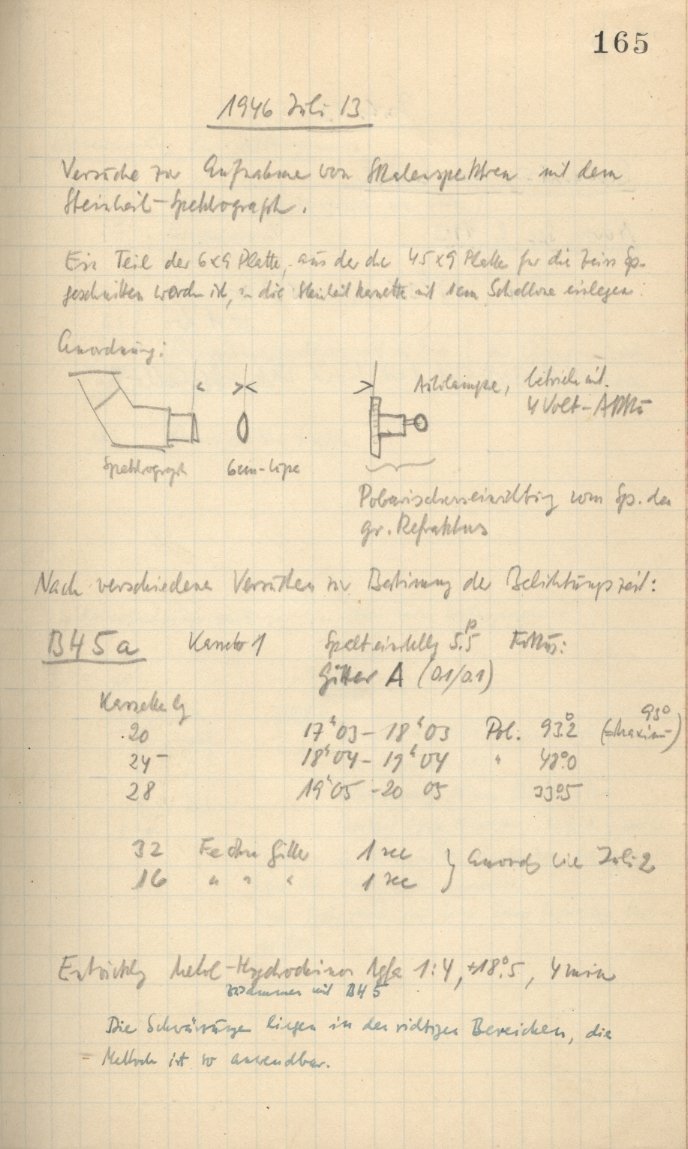 165
1946 Juli 13
Versuche zur Aufnahme von Skalenspektren mit dem
Steinheil-Spektrograph.
Ein Teil der 6x9 Platte, aus der die 4.5x9 Platte für die Zeiss Sp.
geschnitten worden ist, in die Steinheil Kassette mit 1 cm Schablone einlegen.
Anordnung:
Autolampe, betrieb mit
4 Volt-Akku
Spektrograph 6cm-Lupe
vom Sp. des
gr. Refraktors
Nach verschiedenen Versuchen zur Bestimmung der Belichtungszeit:
B45a Kassette 1 Spalteinstellg 5.5 Fokus:
Gitter A (0.1/0.1)
Kassettenstellg
20 17h03 - 18h03 Pol. 93.°2 (=Maximum) 93°
24 18h04 - 19h04 " 48.°0
28 19h05 - 20 05 33.°5
32 Fe ohne Gitter 1 sec } Anordg wie Juli 2
16 " " " 1 sec
Entwicklg Metol-Hydrochinon Agfa 1:4, +18.°5, 4 min
zusammen mit B45
Die Schwärzungen liegen in den richtigen Bereichen, die
Methode ist so anwendbar.